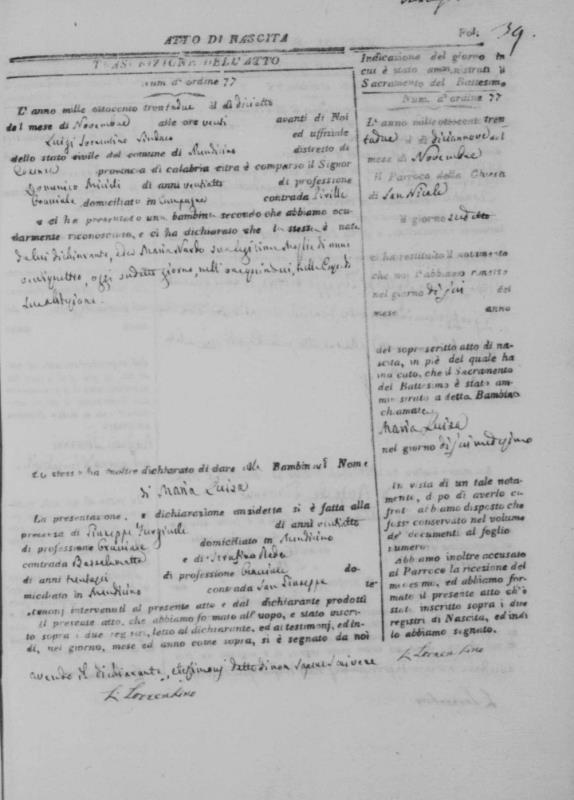 ATTO DI NASCITA
Fol. 39.
TRASCRIZIONE DELL'ATTO
Num. d'ordine 77
L'anno mille ottocento trentadue il dì diciotto
del mese di Novembre alle ore venti avanti di Noi
Luigi Sorrentino Sindaco ed uffiziale
dello stato civile del comune di Mendicino distretto di
Cosenza provincia di calabria citra è comparso il Signor
Domenico di anni ventiotto di professione
domiciliato in Campagna contrada
e ci ha presentato una bambina secondo che abbiamo ocu-
larmente riconosciuto, e ci ha dichiarato che la stessa è nata
da lui dichiarante, e da Maria sua legittima moglie di anni
ventiquattro, oggi sudetto giorno, nell' ore quindici, nella Casa di
sua abitazione.
Lo stesso ha inoltre dichiarato di dare alla Bambina il Nome
di Maria Luisa
La presentazione, e dichiarazione anzidetta si è fatta alla
presenza di Giuseppe di anni ventiotto
di professione domiciliato in Mendicino
contrada e di Serafino
di anni di professione do-
miciliato in Mendicino contrada San Giuseppe te-
stimonj intervenuti al presente atto e dal dichiarante prodotti
Il presente atto, che abbiamo formato all'uopo, è stato inscrit-
to sopra i due registri, letto al dichiarante, ed ai testimonj, ed in-
di, nel giorno, mese ed anno come sopra, si è segnato da noi
avendo il dichiarante, e testimonj detto di non sapere scrivere
L. Sorrentino
Indicazione del giorno in
cui è stato amministrato il
Sacramento del Battesimo
Num. d'ordine 77
L'anno mille ottocento tren-
tadue il dì diciannove del
mese di Novembre
il Parroco della Chiesa
di San Nicola
il giorno sudetto
ci ha restituito il notamento
che noi l'abbiamo rimesso
nel giorno del
mese anno
del soprascritto atto di na-
scita, in piè del quale ha
indicato, che il Sacramento
del Battesimo è stato am-
ministrato a detta Bambina
chiamata
Maria Luisa
nel giorno medesimo
In vista di un tale nota-
mento, dopo di averlo ci-
frato abbiamo disposto che
fusse conservato nel volume
de' documenti al foglio
numero
Abbiamo inoltre accusato
al Parroco la ricezione del
medesimo, ed abbiamo for-
mato il presente atto ch'è
stato inscritto sopra i due
registri di Nascita, ed indi
lo abbiamo segnato.
L. Sorrentino